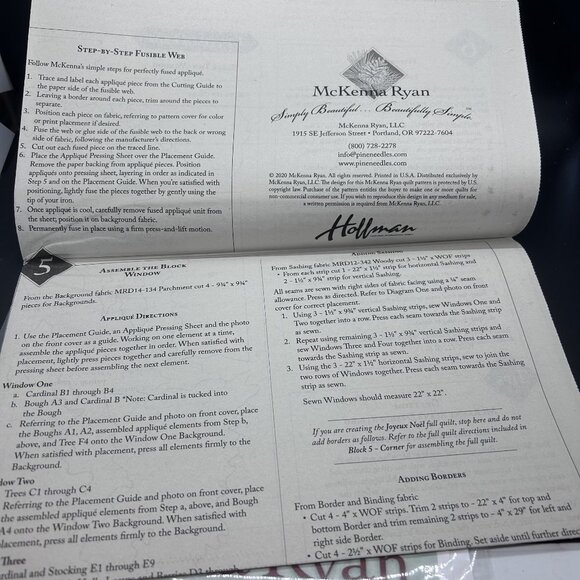 STEP-BY-STEP FUSIBLE WEB
Follow McKenna's simple steps for perfectly fused appliqué.
1. Trace and label each appliqué piece from the Cutting Guide to
the paper side of the fusible web.
2. Leaving a border around each piece, trim around the pieces to
separate.
3. Position each piece on fabric, referring to pattern cover for color
or print placement if desired.
4. Fuse the web or glue side of the fusible web to the back or wrong
side of fabric, following the manufacturer's directions.
5. Cut out each fused piece on the traced line.
6. Place the Appliqué Pressing Sheet over the Placement Guide.
Remove the paper backing from appliqué pieces. Position
appliqués onto pressing sheet, layering in order as indicated in
Step 5 and on the Placement Guide. When you're satisfied with
positioning, lightly fuse the pieces together by gently using the
tip of your iron.
7. Once appliqué is cool, carefully remove fused appliqué unit from
the sheet; position it on background fabric.
8. Permanently fuse in place using a firm press-and-lift motion.
McKenna Ryan
Simply Beautiful... Beautifully Simple ™
McKenna Ryan, LLC
1915 SE Jefferson Street • Portland, OR 97222-7604
(800) 728-2278
info@pineneedles.com
www.pineneedles.com
© 2020 McKenna Ryan. All rights reserved. Printed in U.S.A. Distributed exclusively by
McKenna Ryan, LLC. The design for this McKenna Ryan quilt pattern is protected by U.S.
copyright law. Purchase of this pattern entitles the buyer to make one or more quilts for
non-commercial use. If you wish to reproduce this design in any medium for sale,
a written permission is required from McKenna Ryan, LLC.
Hoffman
5
ASSEMBLE THE BLOCK
WINDOW
From the Background fabric MRD14-134 Parchment cut 4 - 9¼" x 9¾"
pieces for Backgrounds.
APPLIQUÉ DIRECTIONS
1. Use the Placement Guide, an Appliqué Pressing Sheet and the photo
on the front cover as a guide. Working on one element at a time,
assemble the appliqué pieces together in order. When satisfied with
placement, lightly press pieces together and carefully remove from the
pressing sheet before assembling the next element.
Window One
a. Cardinal B1 through B4
b. Bough A3 and Cardinal B *Note: Cardinal is tucked into
the Bough
c. Referring to the Placement Guide and photo on front cover, place
the Boughs A1, A2, assembled appliqué elements from Step b,
above, and Tree F4 onto the Window One Background.
When satisfied with placement, press all elements firmly to the
Background.
dow Two
Trees C1 through C4
Referring to the Placement Guide and photo on front cover, place
the assembled appliqué elements from Step a, above, and Bough
A4 onto the Window Two Background. When satisfied with
placement, press all elements firmly to the Background.
Three
ardinal and Stocking E1 through E9
From Sashing fabric MRD12-342 Woody cut 3 – 1½" x WOF strips
• From each strip cut 1 - 22" x 1½" strip for horizontal Sashing and
2 - 1½" x 9¾" strip for vertical Sashing.
All seams are sewn with right sides of fabric facing using a ¼" seam
allowance. Press as directed. Refer to Diagram One and photo on front
cover for correct placement.
1. Using 3 - 1½" x 9¾" vertical Sashing strips, sew Windows One and
Two together into a row. Press each seam towards the Sashing strip
as sewn.
2. Repeat using remaining 3 - 1½" x 9¾" vertical Sashing strips and
sew Windows Three and Four together into a row. Press each seam
towards the Sashing strip as sewn.
3. Using the 3 - 22" x 1½" horizontal Sashing strips, sew to join the
two rows of Windows together. Press each seam towards the Sashing
strip as sewn.
Sewn Windows should measure 22" x 22".
If you are creating the Joyeux Noël full quilt, stop here and do not
add borders as follows. Refer to the full quilt directions included in
Block 5 – Corner for assembling the full quilt.
ADDING BORDERS
From Border and Binding fabric
• Cut 4 - 4" x WOF strips. Trim 2 strips to - 22" x 4" for top and
bottom Border and trim remaining 2 strips - 4" x 29" for left and
right side Border.
• Cut 4 - 2½" x WOF strips for Binding. Set aside until further direc